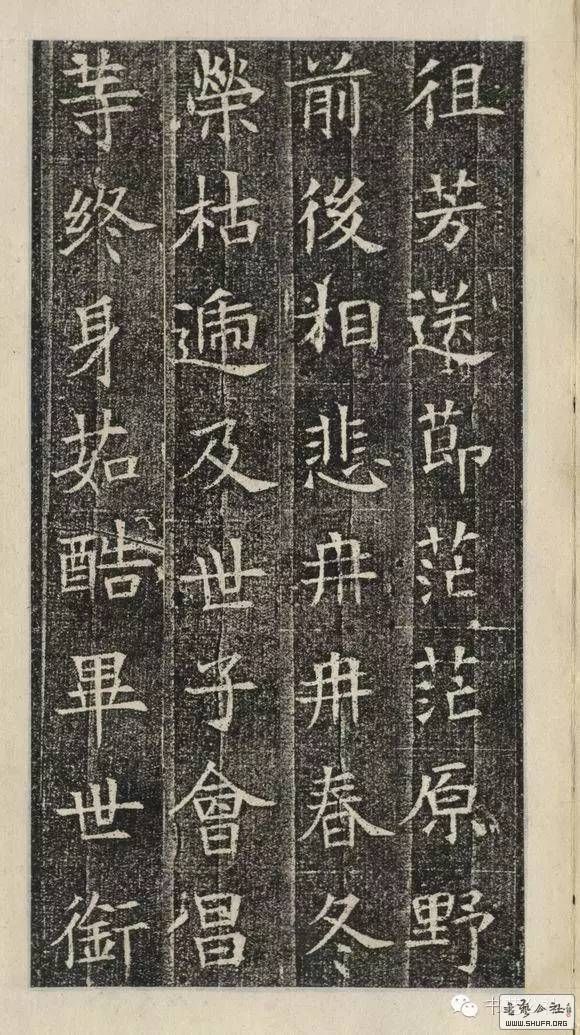 徂芳送莭茫茫原野
前後相悲冉冉春冬
榮枯遞及世子會昌
等終身茹酷畢世銜
WWW.SHUFA.ORG